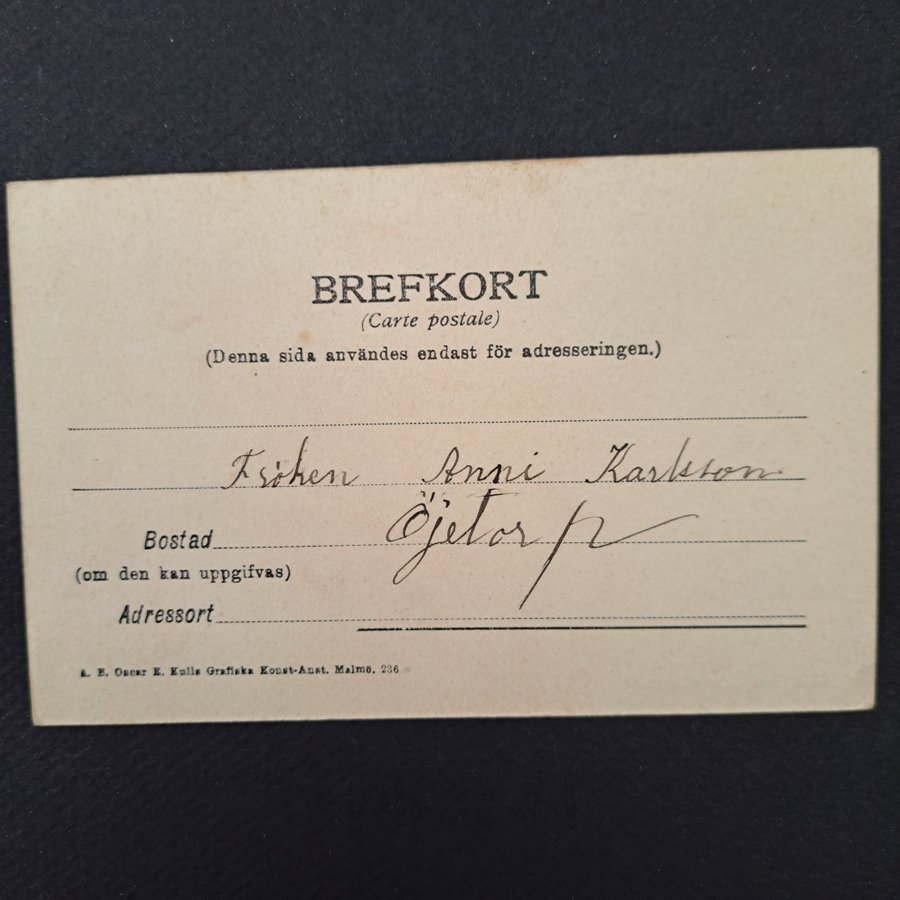 BREFKORT
(Carte postale)
(Denna sida användes endast för adresseringen.)
Fröken Anni Karlsson
Öjetorp
Bostad
(om den kan uppgifvas)
Adressort
A. B. Oscar E. Kulls Grafiska Konst-Anst. Malmö. 236